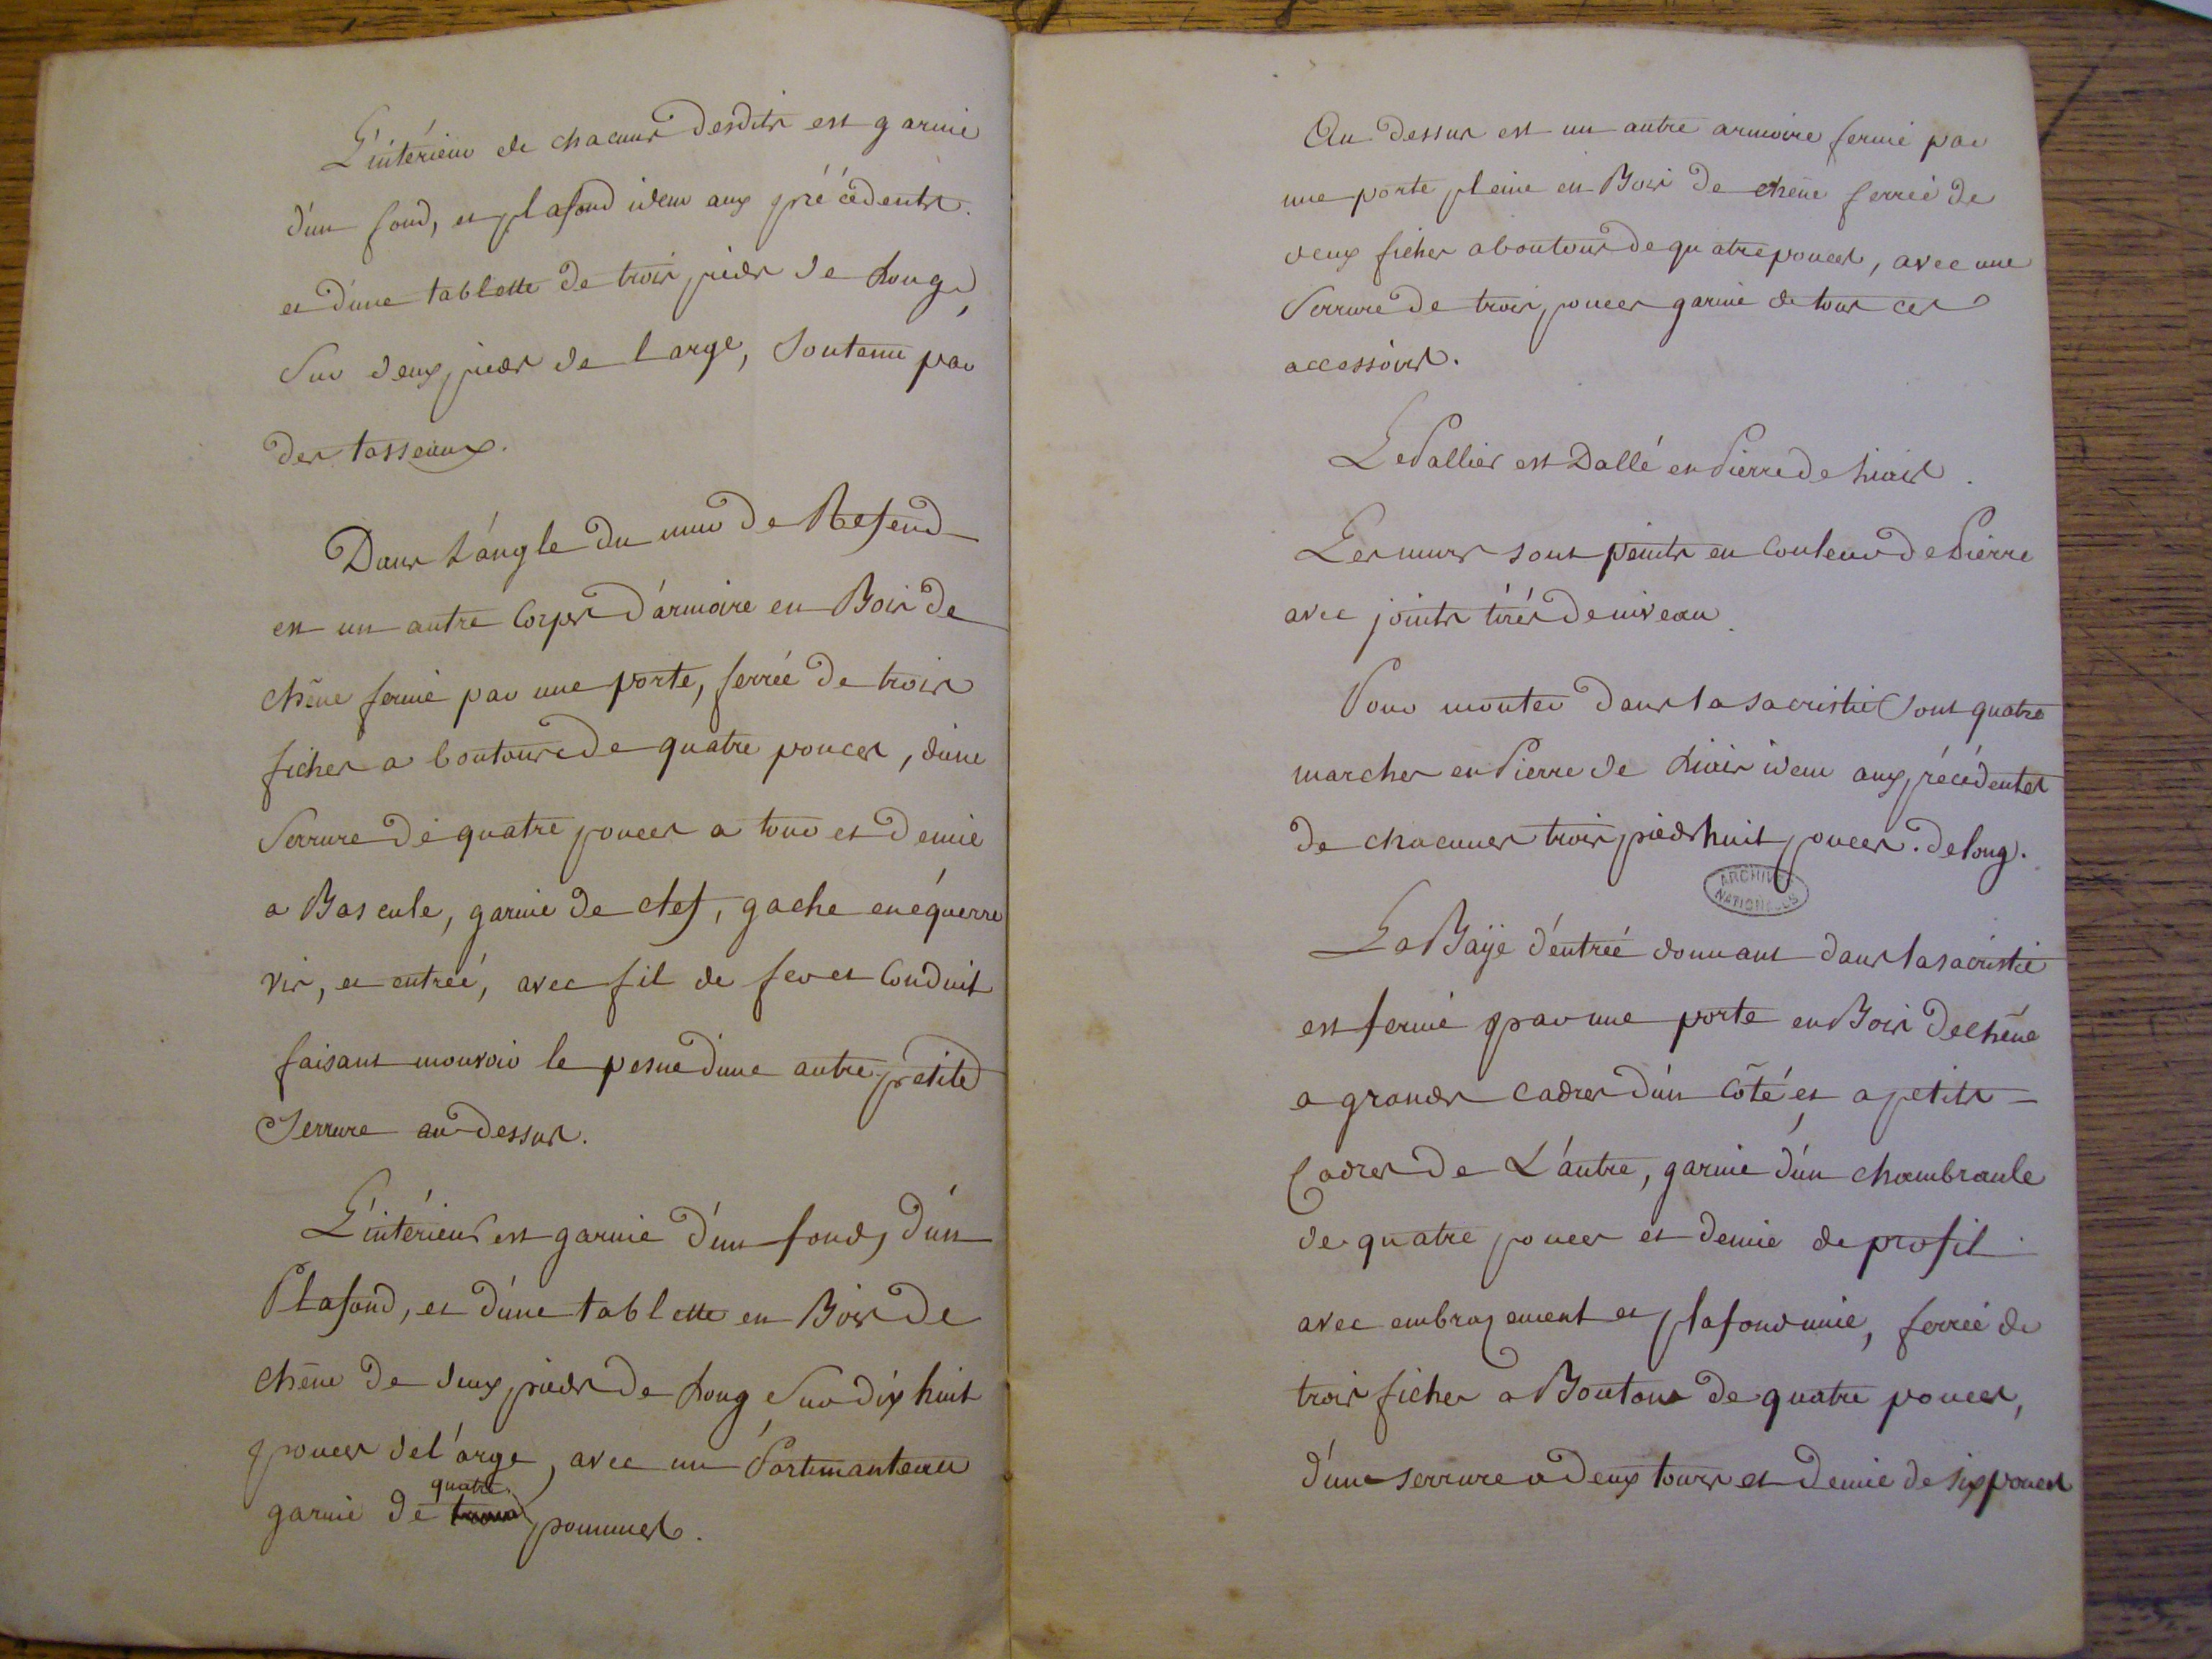 L'intérieur de chacuns desdits est garnie
d'un fond, et plafond idem aux précédents.
et d'une tablette de trois pieds de Long,
Sur deux pieds de Large, Soutenu par
des tasseaux.
Dans L'angle du mur de Refend
est un autre Corps d'armoire en Bois de
chêne fermé par une porte, ferrée de trois
fiches a boutons de quatre pouces, d'une
Serrure de quatre pouces a tour et demie
a Bascule, garnie de clef, gache en équerre
vis, et entreé, avec fil de fer et Conduit
faisant mouvoir le pesne d'une autre petite
Serrure au dessus.
L'intérieur est garnie d'un fond, d'un
Plafond, et d'une tablette en Bois de
chêne de deux pieds de Long Sur dix huit
pouces de l'arge, avec un Portemanteau
quatre
garnie de trois pommes.
Au dessus est un autre armoire fermé par
une porte pleine en Bois de chêne ferrée de
deux fiches a boutons de quatre pouces, avec une
Serrure de trois pouces garnie de tous ces
accessoires.
Le Pallier est Dallé en Pierre de liais.
Les murs sont peints en Couleur de Pierre
avec joints tirés de niveau.
Pour monter dans la sacristie sont quatre
marches en Pierre de Liais idem aux précédentes
de chacunes trois pieds huit pouces. de long.
ARCHIVES NATIONALES
La Baÿe d'entreé donnant dans la sacristie
est fermé par une porte en Bois de chêne
a grands cadres d'un Côté et a petits
Cadres de L'autre, garnie d'un chambranle
de quatre pouces et demie de profil
avec embrazement et plafond unie, ferrée de
trois fiches a Boutons de quatre pouces,
d'une serrure a deux tours et demie de six pouces